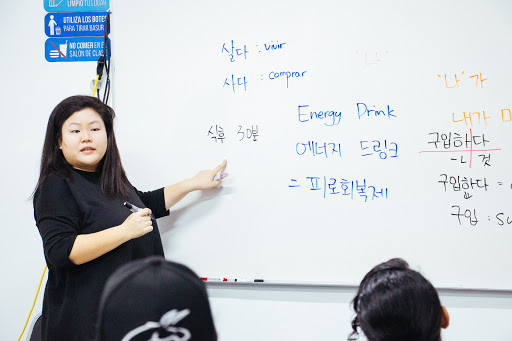 LIMPIO TU LOCAL
UTILIZA LOS BOTES
PARA TIRAR BASUR
NO COMER EN EL
SALÓN DE CLAS
살다 : vivir
사다 : comprar
식후 30분
Energy Drink
에너지 드링크
= 피로회복제
'나'
'나'가
내가
구입하다
-ㄴ 것
구입한다 =
구입 : su